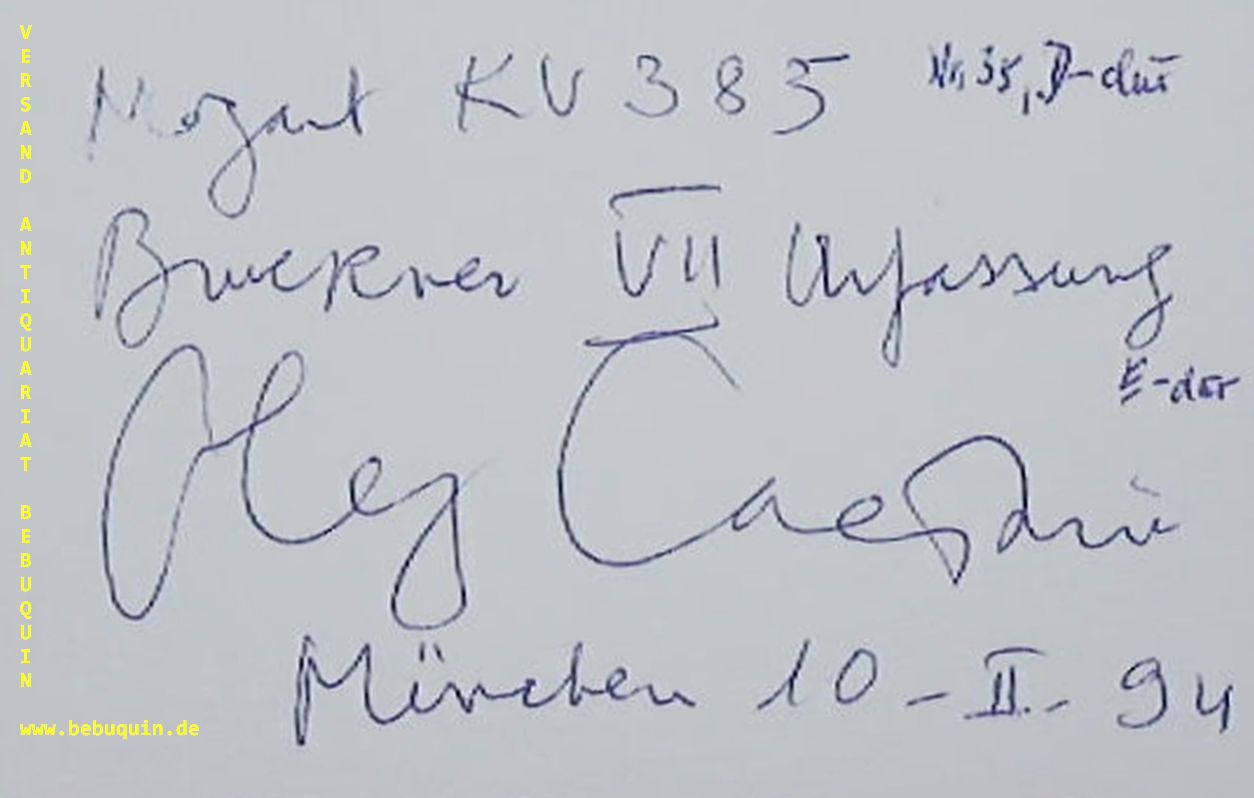 Mozart KV 385 Nr. 35, D-dur
Bruckner VII Urfassung
E-dur
Oleg Caetani
München 10-II-94
VERSAND ANTIQUARIAT BEBUQUIN
www.bebuquin.de